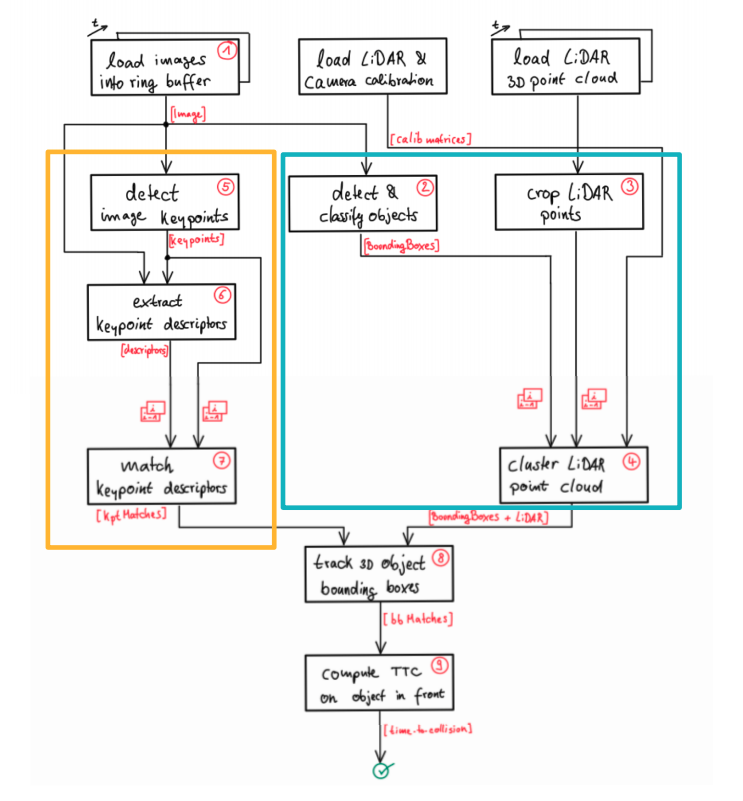 t
t
load images
into ring buffer
1
load LiDAR &
Camera calibration
load LiDAR
3D point cloud
[Image]
[calib matrices]
detect
image keypoints
5
detect &
classify objects
2
crop LiDAR
points
3
[keypoints]
[BoundingBoxes]
extract
keypoint descriptors
6
[descriptors]
i
i-1
i
i-1
i
i-1
i
i-1
match
keypoint descriptors
7
cluster LiDAR
point cloud
4
[KptMatches]
[BoundingBoxes + LiDAR]
track 3D object
bounding boxes
8
[bb Matches]
compute TTC
on object in front
9
[time-to-collision]